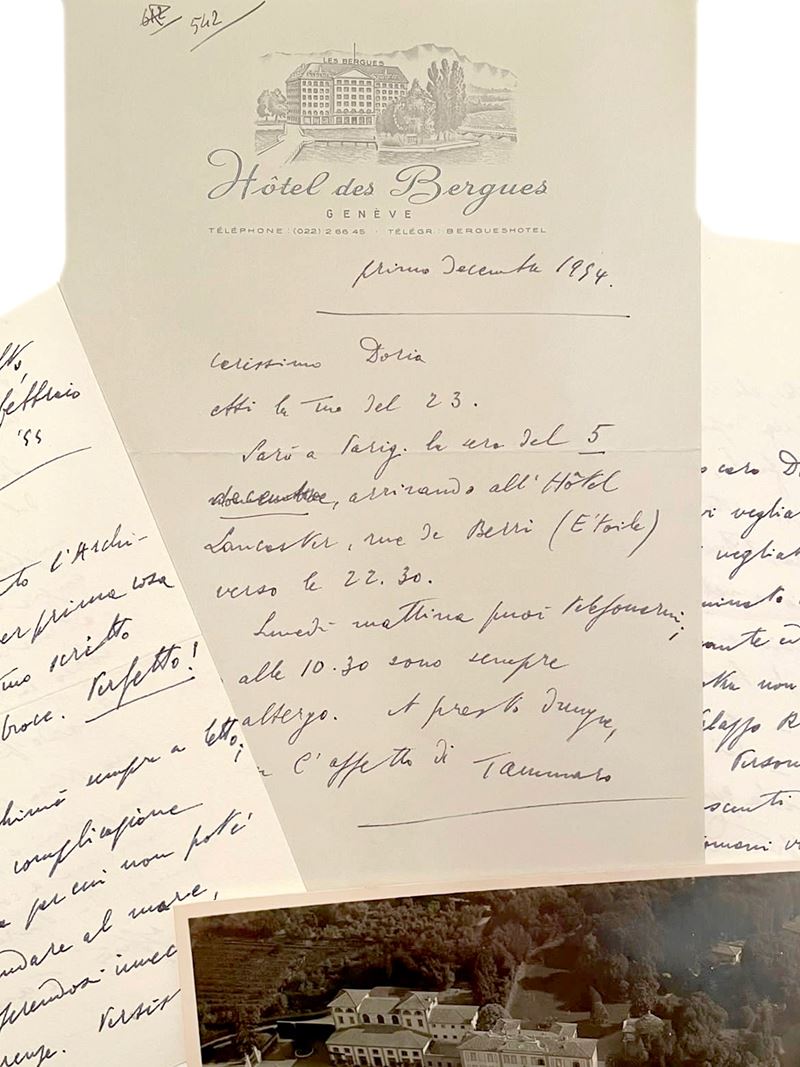 542
LES BERGUES
Hôtel des Bergues
GENÈVE
TÉLÉPHONE : (022) 2 66 45 · TÉLÉGR.: BERGUESHOTEL
primo decembre 1954.
carissimo Doria
etti la tua del 23.
Sarò a Parigi la sera del 5
decembre, arrivando all'Hôtel
Lancaster, rue de Berri (Etoile)
verso le 22.30.
Lunedì mattina puoi telefonarmi;
alle 10.30 sono sempre
albergo. A presto dunque,
l'affetto di Tammaro
febbraio
'55
to l'Archi-
er prima cosa
tuo scritto
broce. Perfetto!
sempre a letto;
complicazione
per cui non poté
ndare al mare,
ferendosi invec
renze.
caro D
vi veglia
vegliat
minato
ante
non
Person
scenti
omani v